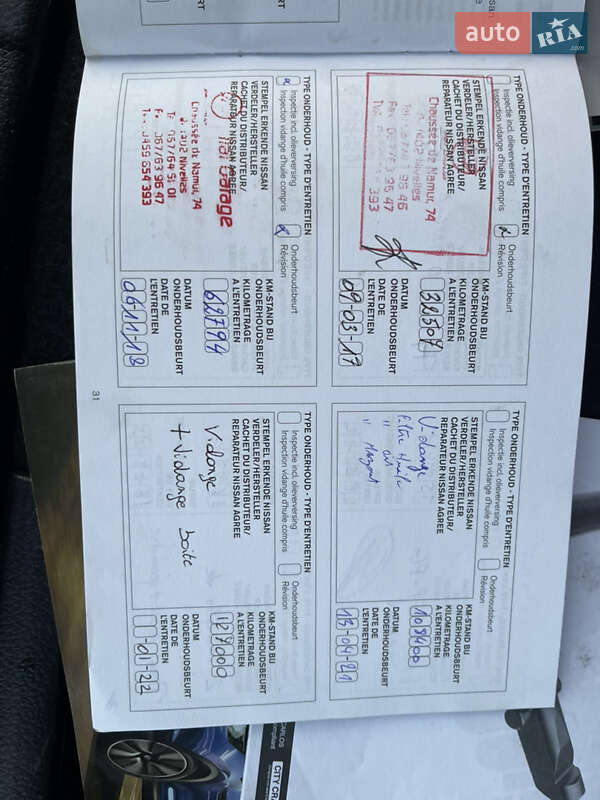 auto RIA.com
TYPE ONDERHOUD - TYPE D'ENTRETIEN
Inspectie incl. olieverversing
Inspection vidange d'huile compris
Onderhoudsbeurt
Révision
STEMPEL ERKENDE NISSAN
VERDELER/HERSTELLER
CACHET DU DISTRIBUTEUR/
REPARATEUR NISSAN AGREE
Chaussée de Namur, 74
Nivelles
393
KM-STAND BIJ
ONDERHOUDSBEURT
KILOMETRAGE
A L'ENTRETIEN
32507
DATUM
ONDERHOUDSBEURT
DATE DE
L'ENTRETIEN
09-03-17
TYPE ONDERHOUD - TYPE D'ENTRETIEN
Inspectie incl. olieverversing
Inspection vidange d'huile compris
Onderhoudsbeurt
Révision
STEMPEL ERKENDE NISSAN
VERDELER/HERSTELLER
CACHET DU DISTRIBUTEUR/
REPARATEUR NISSAN AGREE
Vidange
Filtre
KM-STAND BIJ
ONDERHOUDSBEURT
KILOMETRAGE
A L'ENTRETIEN
DATUM
ONDERHOUDSBEURT
DATE DE
L'ENTRETIEN
13-04-21
TYPE ONDERHOUD - TYPE D'ENTRETIEN
Inspectie incl. olieverversing
Inspection vidange d'huile compris
Onderhoudsbeurt
Révision
STEMPEL ERKENDE NISSAN
VERDELER/HERSTELLER
CACHET DU DISTRIBUTEUR/
REPARATEUR NISSAN AGREE
Chaussée de Namur, 74
Nivelles
067/64 91 01
067/63 96 47
0459 654 393
KM-STAND BIJ
ONDERHOUDSBEURT
KILOMETRAGE
A L'ENTRETIEN
62794
DATUM
ONDERHOUDSBEURT
DATE DE
L'ENTRETIEN
06-11-18
TYPE ONDERHOUD - TYPE D'ENTRETIEN
Inspectie incl. olieverversing
Inspection vidange d'huile compris
Onderhoudsbeurt
Révision
STEMPEL ERKENDE NISSAN
VERDELER/HERSTELLER
CACHET DU DISTRIBUTEUR/
REPARATEUR NISSAN AGREE
Vidange
+ Vidange boite
KM-STAND BIJ
ONDERHOUDSBEURT
KILOMETRAGE
A L'ENTRETIEN
127000
DATUM
ONDERHOUDSBEURT
DATE DE
L'ENTRETIEN
-01-22
31
CARLOS
CITY CRA